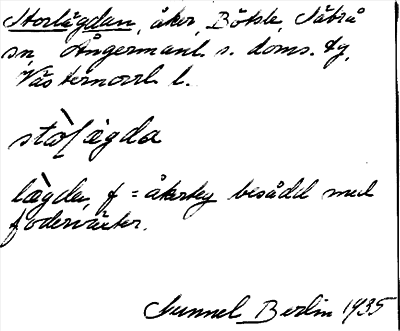 Storlägdan, åker, Bölsle, Säbrå
sn, Ångermanl. s. doms. fg,
Västernorrl. l.
stòḷægda
lægda, f = åkerteg besådd med
foderväxter.
Gunnel Berlin 1935